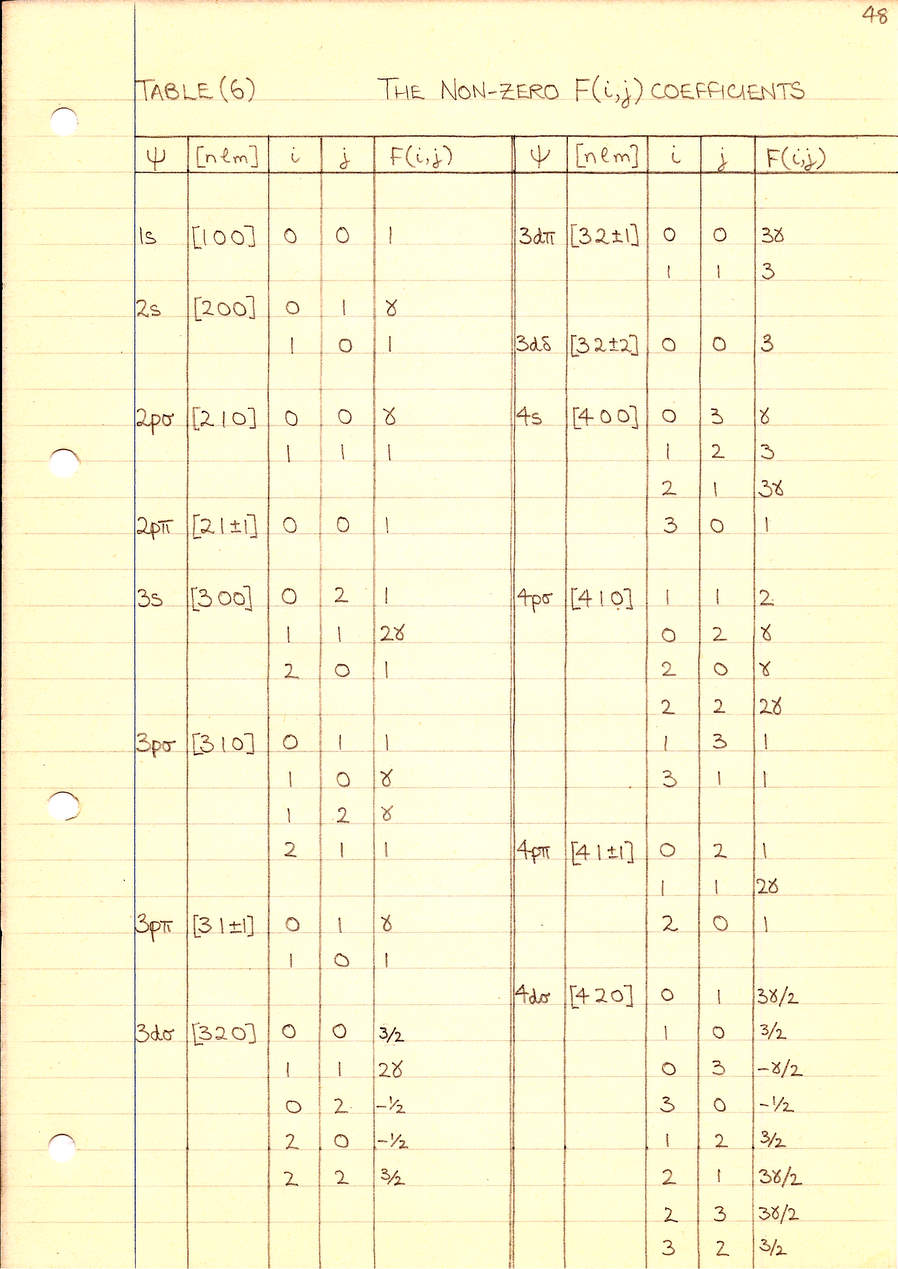 48
TABLE (6) THE NON-ZERO F(i,j) COEFFICIENTS
ψ [nlm] i j F(i,j) ψ [nlm] i j F(i,j)
1s [100] 0 0 1 3dπ [32±1] 0 0 3γ
1 1 3
2s [200] 0 1 γ
1 0 1 3dδ [32±2] 0 0 3
2pσ [210] 0 0 γ 4s [400] 0 3 γ
1 1 1 1 2 3
2 1 3γ
2pπ [21±1] 0 0 1 3 0 1
3s [300] 0 2 1 4pσ [410] 1 1 2
1 1 2γ 0 2 γ
2 0 1 2 0 γ
2 2 2γ
3pσ [310] 0 1 1 1 3 1
1 0 γ 3 1 1
1 2 γ
2 1 1 4pπ [41±1] 0 2 1
1 1 2γ
3pπ [31±1] 0 1 γ 2 0 1
1 0 1
4dσ [420] 0 1 3γ/2
3dσ [320] 0 0 3/2 1 0 3/2
1 1 2γ 0 3 -γ/2
0 2 -1/2 3 0 -1/2
2 0 -1/2 1 2 3/2
2 2 3/2 2 1 3γ/2
2 3 3γ/2
3 2 3/2